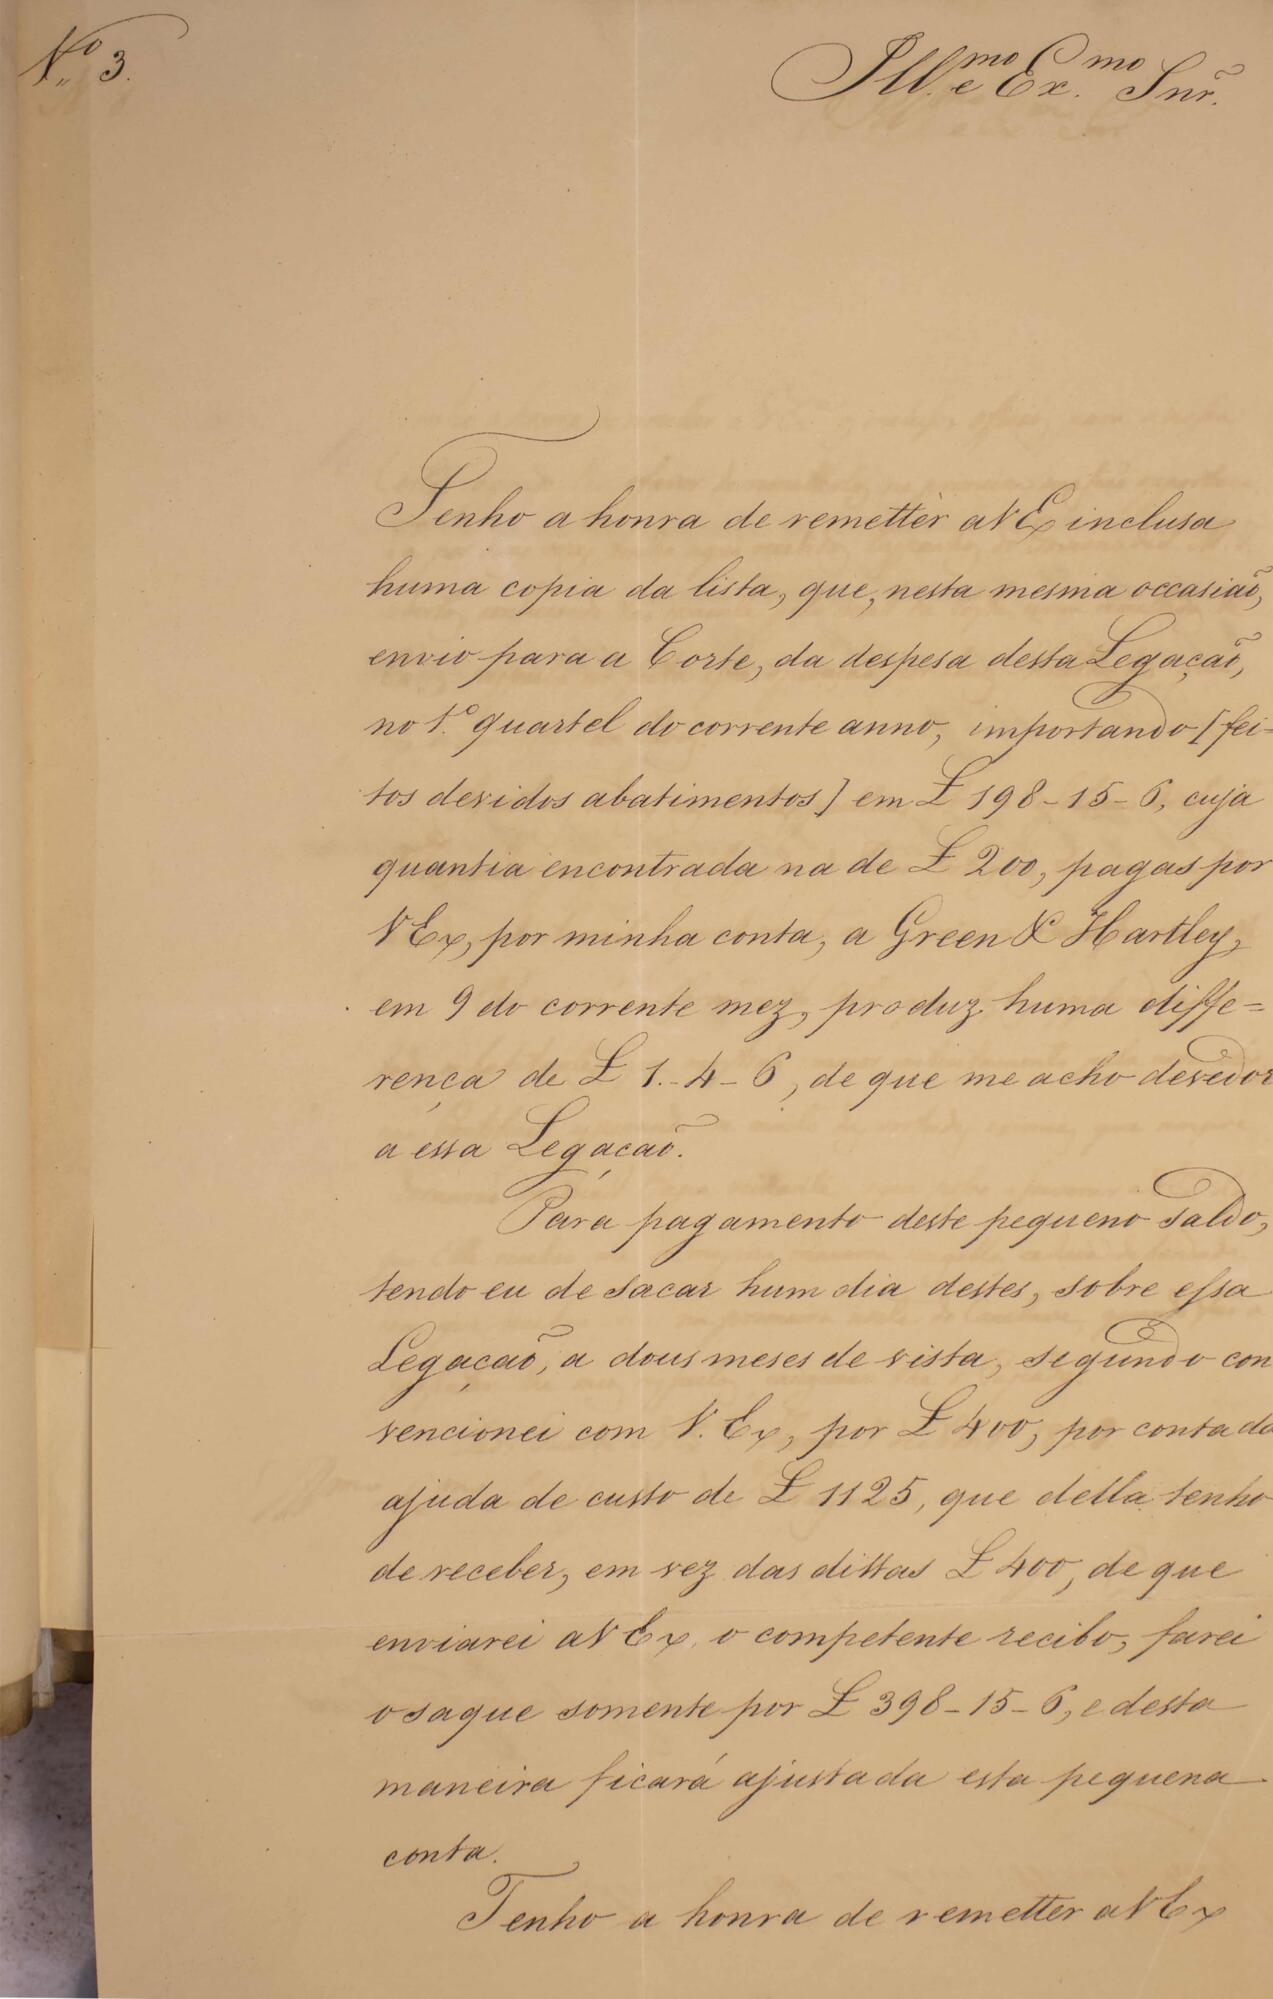 Nº 3.
Ill.mo e Ex.mo Snr̃.
Tenho a honra de remettèr a V Ex inclusa
huma copia da lista, que, nesta mesma occasiaõ,
envio para a Corte, da despesa desta Legaçaõ,
no 1.º quartel do corrente anno, importando [fei-
tos devidos abatimentos] em £ 198-15-6, cuja
quantia encontrada na de £ 200, pagas por
V Ex, por minha conta, a Green & Hartley,
em 9 do corrente mez, produz huma diffe=
rença de £ 1.-4-6, de que me acho devedor
a essa Legaçaõ.
Para pagamento deste pequeno saldo,
tendo eu de sacar hum dia destes, sobre essa
Legaçaõ, a dous meses de vista, segundo con
vencionei com V. Ex, por £ 400, por conta da
ajuda de custo de £ 1125, que della tenho
de receber, em vez das dittas £ 400, de que
enviarei a V Ex, o competente recibo, farei
o saque somente por £ 398-15-6, e desta
maneira ficará ajustada esta pequena
conta.
Tenho a honra de remetter a V Ex